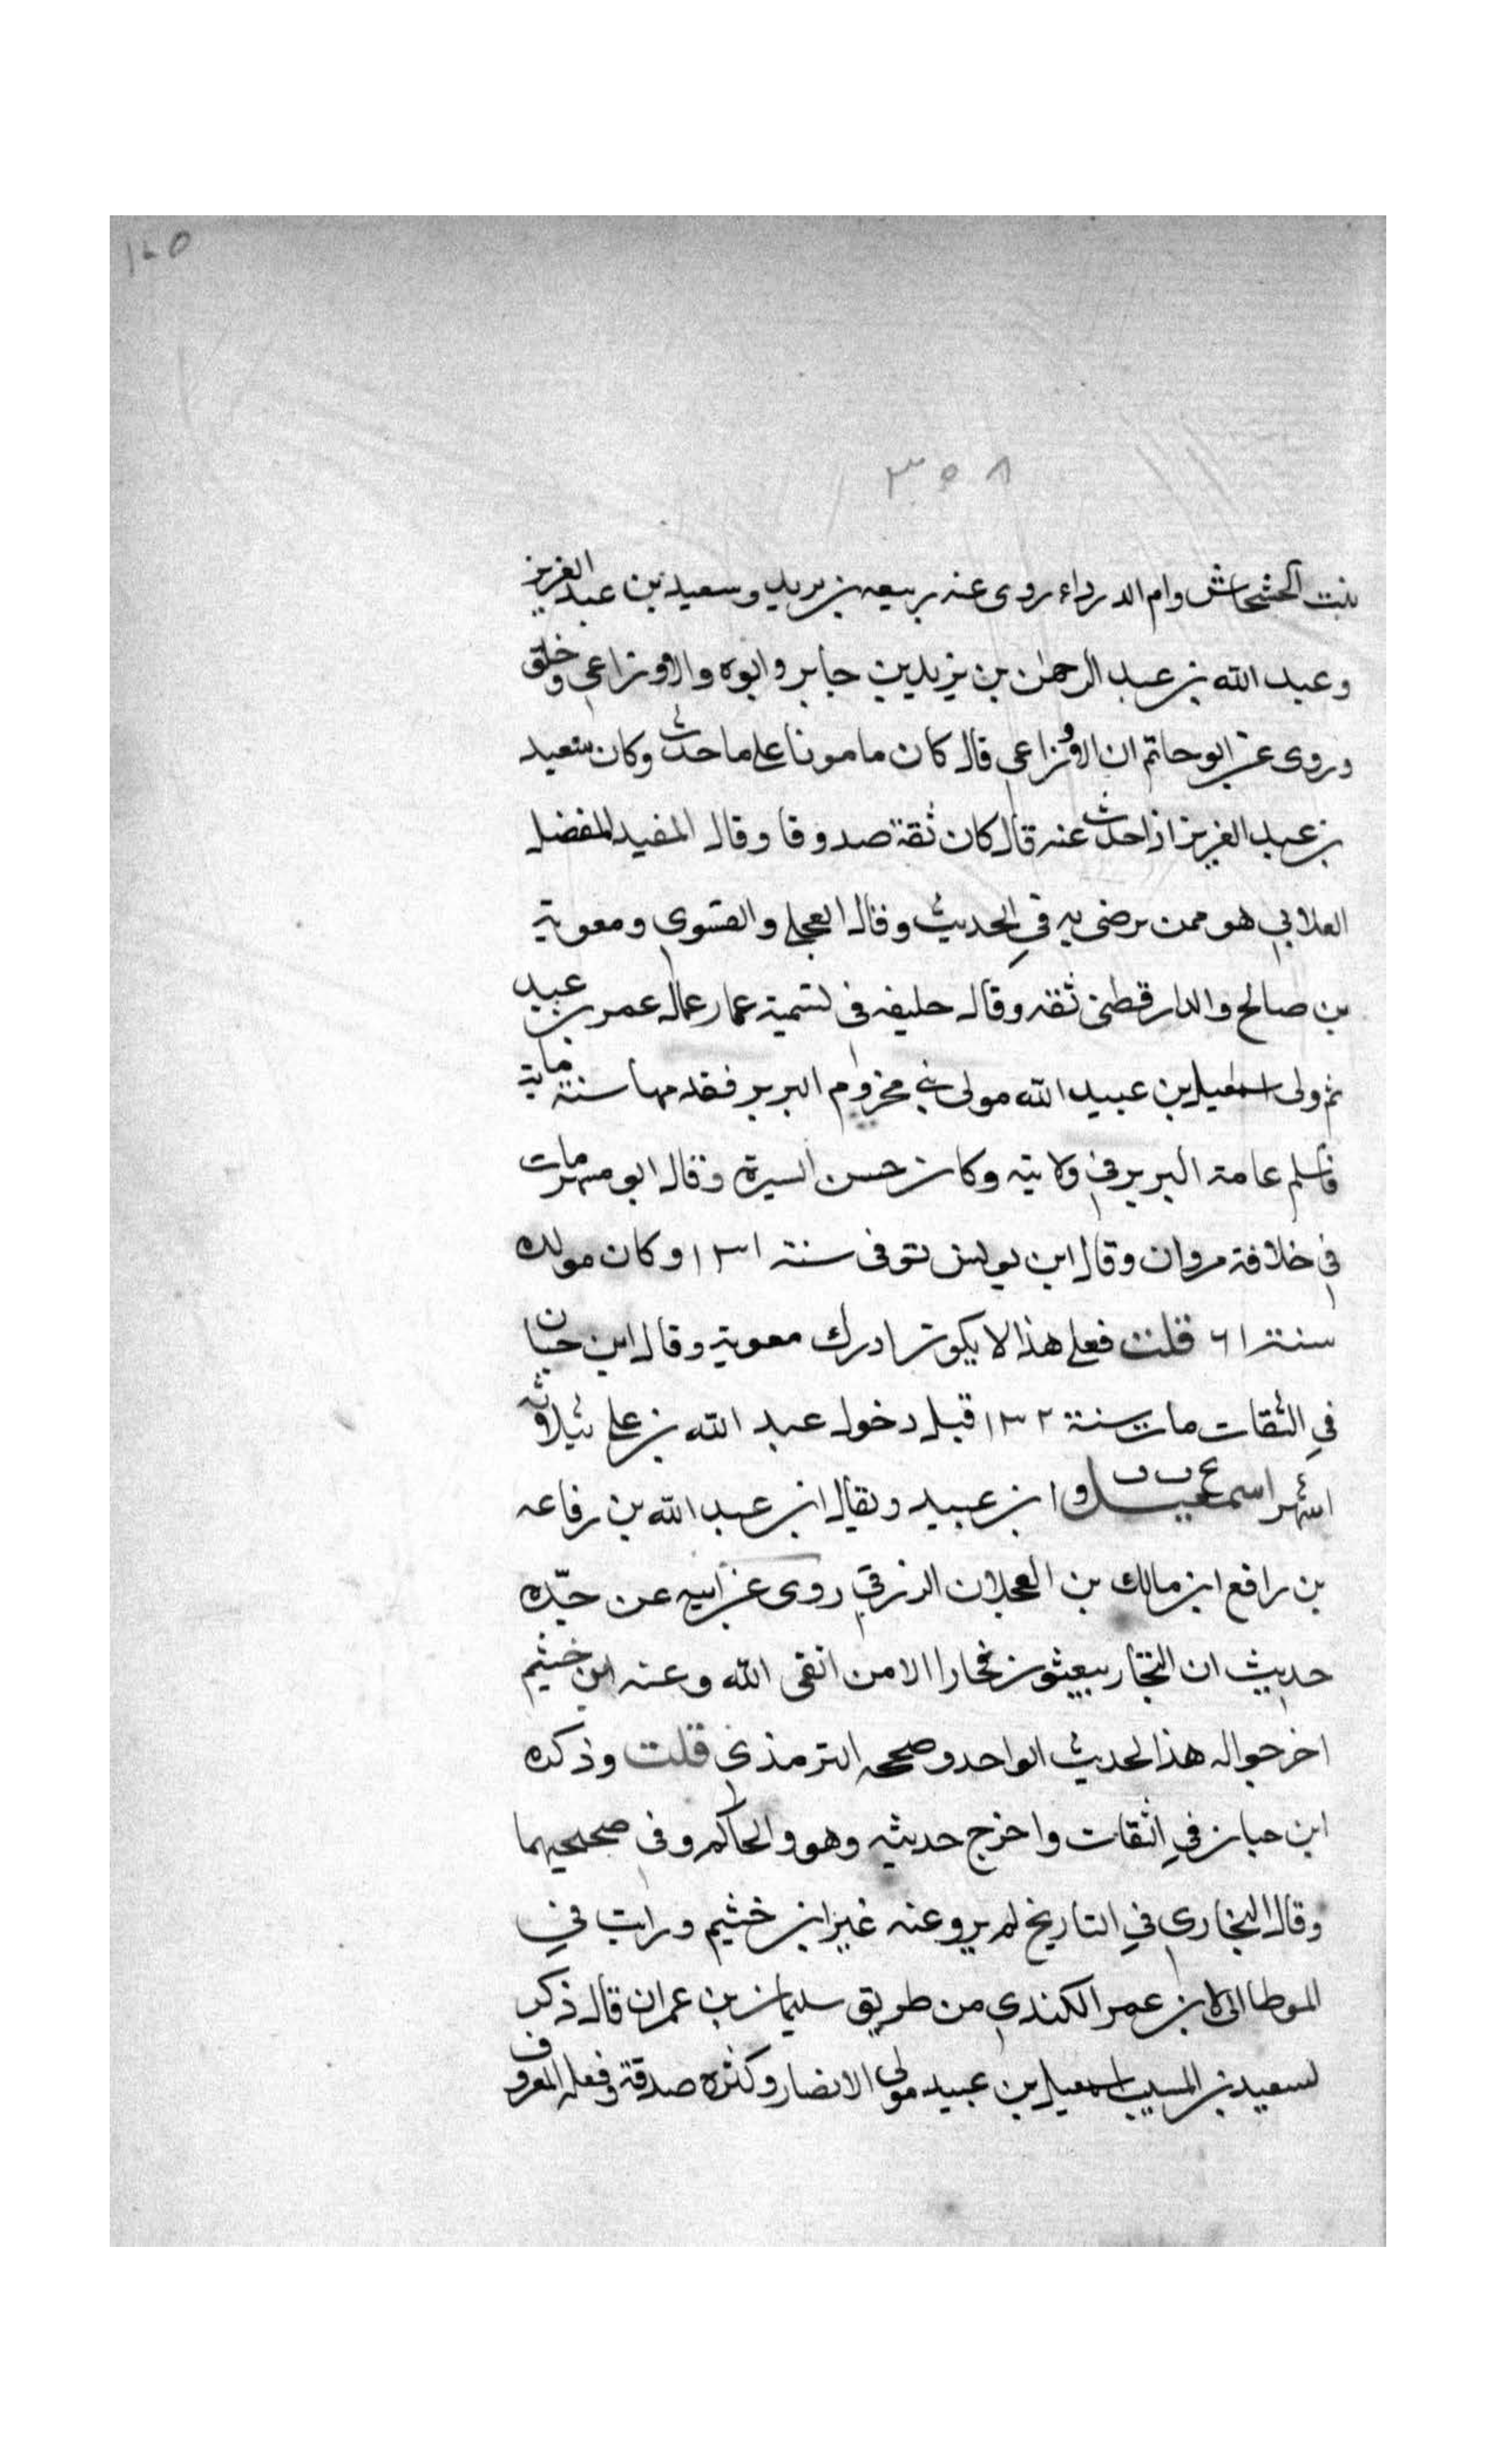 ١٤٥
٣٥٨
بنت الحشحاش وام الدرداء روى عنه ربيعه بن يزيد وسعيد بن عبد العزيز
وعبد الله بن عبد الرحمن بن يزيد بن جابر وابوه والاوزاعي وخلق
وروى عن ابو حاتم ان الاوزاعي قال كان مامونا على ما حدث وكان سعيد
بن عبد العزيز اذا حدث عنه قال كان ثقة صدوقا وقال المفيد المفضل
العلابي هو ممن يرضى به في الحديث وقال العجلي والفسوي ومعوية
بن صالح والدارقطني ثقه وقال خليفه في تسمية عمار عمال عمر بن عبيد
ثم ولى اسمعيل بن عبيد الله مولى بني مخزوم البربر فقدمها سنة ماية
فاسلم عامة البربر في ولايته وكان حسن السيرة وقال ابو مسهر مات
في خلافة مروان وقال ابن يونس توفى سنة ١٣١ وكان مولده
سنة ٦١ قلت فعلى هذا لا يكون ادرك معوية وقال ابن حبان
في الثقات مات سنة ١٣٢ قبل دخول عبد الله بن علي بثلاثة
اشهر اسمعيل ابن عبيد ويقال ابن عبد الله بن رفاعه
بن رافع ابن مالك بن العجلان الزرقي روى عن ابيه عن جده
حديث ان التجار يبعثون فجارا الا من اتقى الله وعنه ابن خثيم
اخرجوا له هذا الحديث الواحد وصححه الترمذي قلت وذكره
ابن حبان في الثقات واخرج حديثه وهو والحاكم وفي صحيحيهما
وقال البخاري في التاريخ لم يرو عنه غير ابن خثيم ورايت في
الموطا الى ابن عمر الكندي من طريق سليمان بن عمران قال ذكر
لسعيد بن المسيب اسمعيل بن عبيد مولى الانصار وكثره صدقة وفعله المعروف